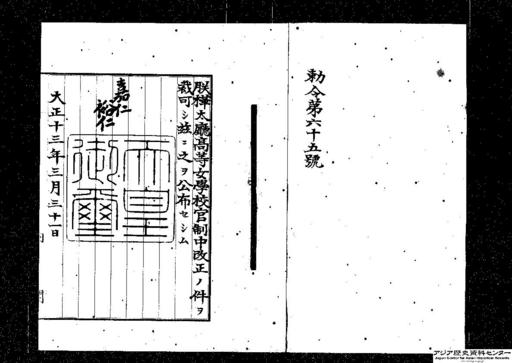 勅令第六十五號
朕樺太廳高等女學校官制中改正ノ件ヲ
裁可シ茲ニ之ヲ公布セシム
嘉仁
裕仁
天皇
御璽
大正十三年三月三十一日
アジア歴史資料センター
Japan Center for Asian Historical Records